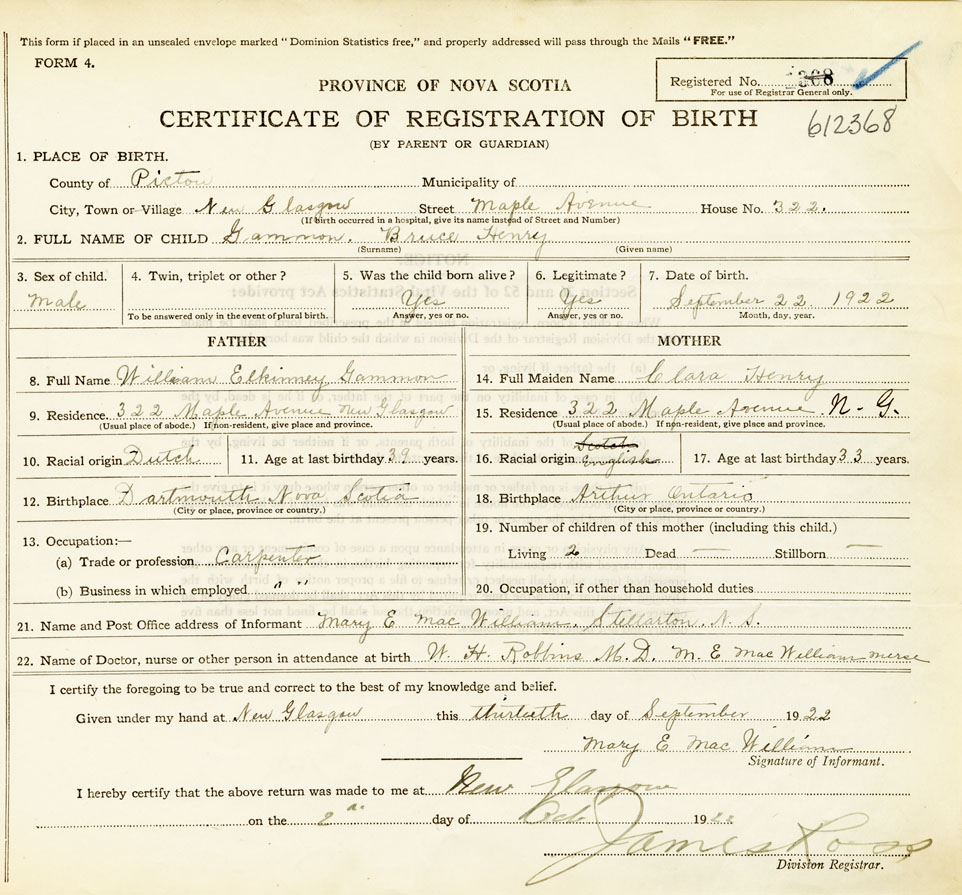 This form if placed in an unsealed envelope marked "Dominion Statistics free," and properly addressed will pass through the Mails "FREE."
FORM 4.
Registered No. 368
For use of Registrar General only.
PROVINCE OF NOVA SCOTIA
CERTIFICATE OF REGISTRATION OF BIRTH
612368
(BY PARENT OR GUARDIAN)
1. PLACE OF BIRTH.
County of Pictou Municipality of
City, Town or Village New Glasgow Street Maple Avenue House No. 322.
(If birth occurred in a hospital, give its name instead of Street and Number)
2. FULL NAME OF CHILD Gammon. Bruce Henry
(Surname) (Given name)
3. Sex of child. 4. Twin, triplet or other? 5. Was the child born alive? 6. Legitimate? 7. Date of birth.
Male Yes Yes September 22. 1922
To be answered only in the event of plural birth. Answer, yes or no. Answer, yes or no. Month, day, year.
FATHER MOTHER
8. Full Name William Elkinney Gammon 14. Full Maiden Name Clara Henry
9. Residence. 322 Maple Avenue New Glasgow 15. Residence 322 Maple Avenue N. G.
(Usual place of abode.) If non-resident, give place and province. (Usual place of abode.) If non-resident, give place and province.
10. Racial origin Dutch 11. Age at last birthday 39 years. 16. Racial origin Scotch English 17. Age at last birthday 33 years.
12. Birthplace Dartmouth Nova Scotia 18. Birthplace Arthur Ontario
(City or place, province or country.) (City or place, province or country.)
19. Number of children of this mother (including this child.)
13. Occupation:—
(a) Trade or profession Carpenter Living 2 Dead — Stillborn —
(b) Business in which employed " " 20. Occupation, if other than household duties
21. Name and Post Office address of Informant Mary E Mac William. Stellarton. N. S.
22. Name of Doctor, nurse or other person in attendance at birth W. H. Robbins M.D. M. E MacWilliam nurse
I certify the foregoing to be true and correct to the best of my knowledge and belief.
Given under my hand at New Glasgow this thirtieth day of September 1922
Mary E MacWilliam
Signature of Informant.
I hereby certify that the above return was made to me at New Glasgow
on the 2 day of Oct 1922
James Ross
Division Registrar.